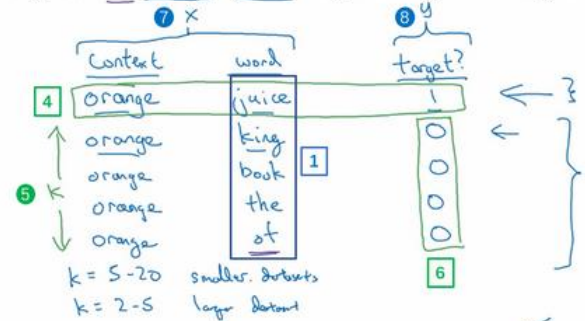 7 x 8 y
context word target?
4 orange juice 1
orange king 0
orange book 1 0
5 k orange the 0
orange of 0
6
k = 5-20 smaller datasets
k = 2-5 larger dataset